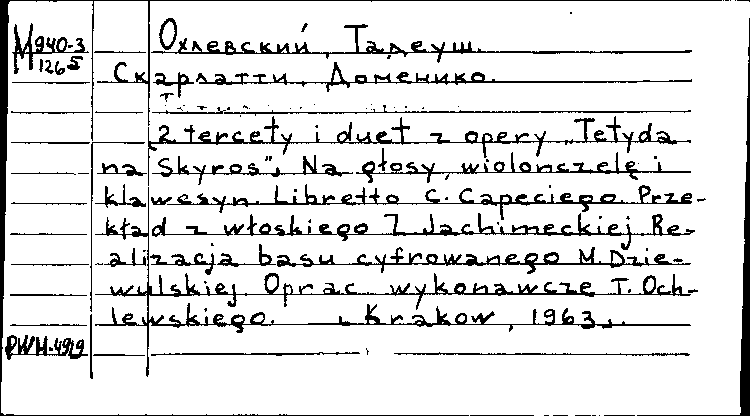 М 940-3
126 5
Охлевский, Тадеуш.
Скарлатти, Доменико.
2 tercety i duet z opery „Tetyda
na Skyros". Na głosy, wiolonczelę i
klawesyn. Libretto C. Capeciego. Prze-
kład z włoskiego Z Jachimeckiej Re-
alizacja basu cyfrowanego M. Dzie-
wulskiej. Oprac wykonawcze T. Och-
lewskiego. Krakow, 1963.
PWM-4929